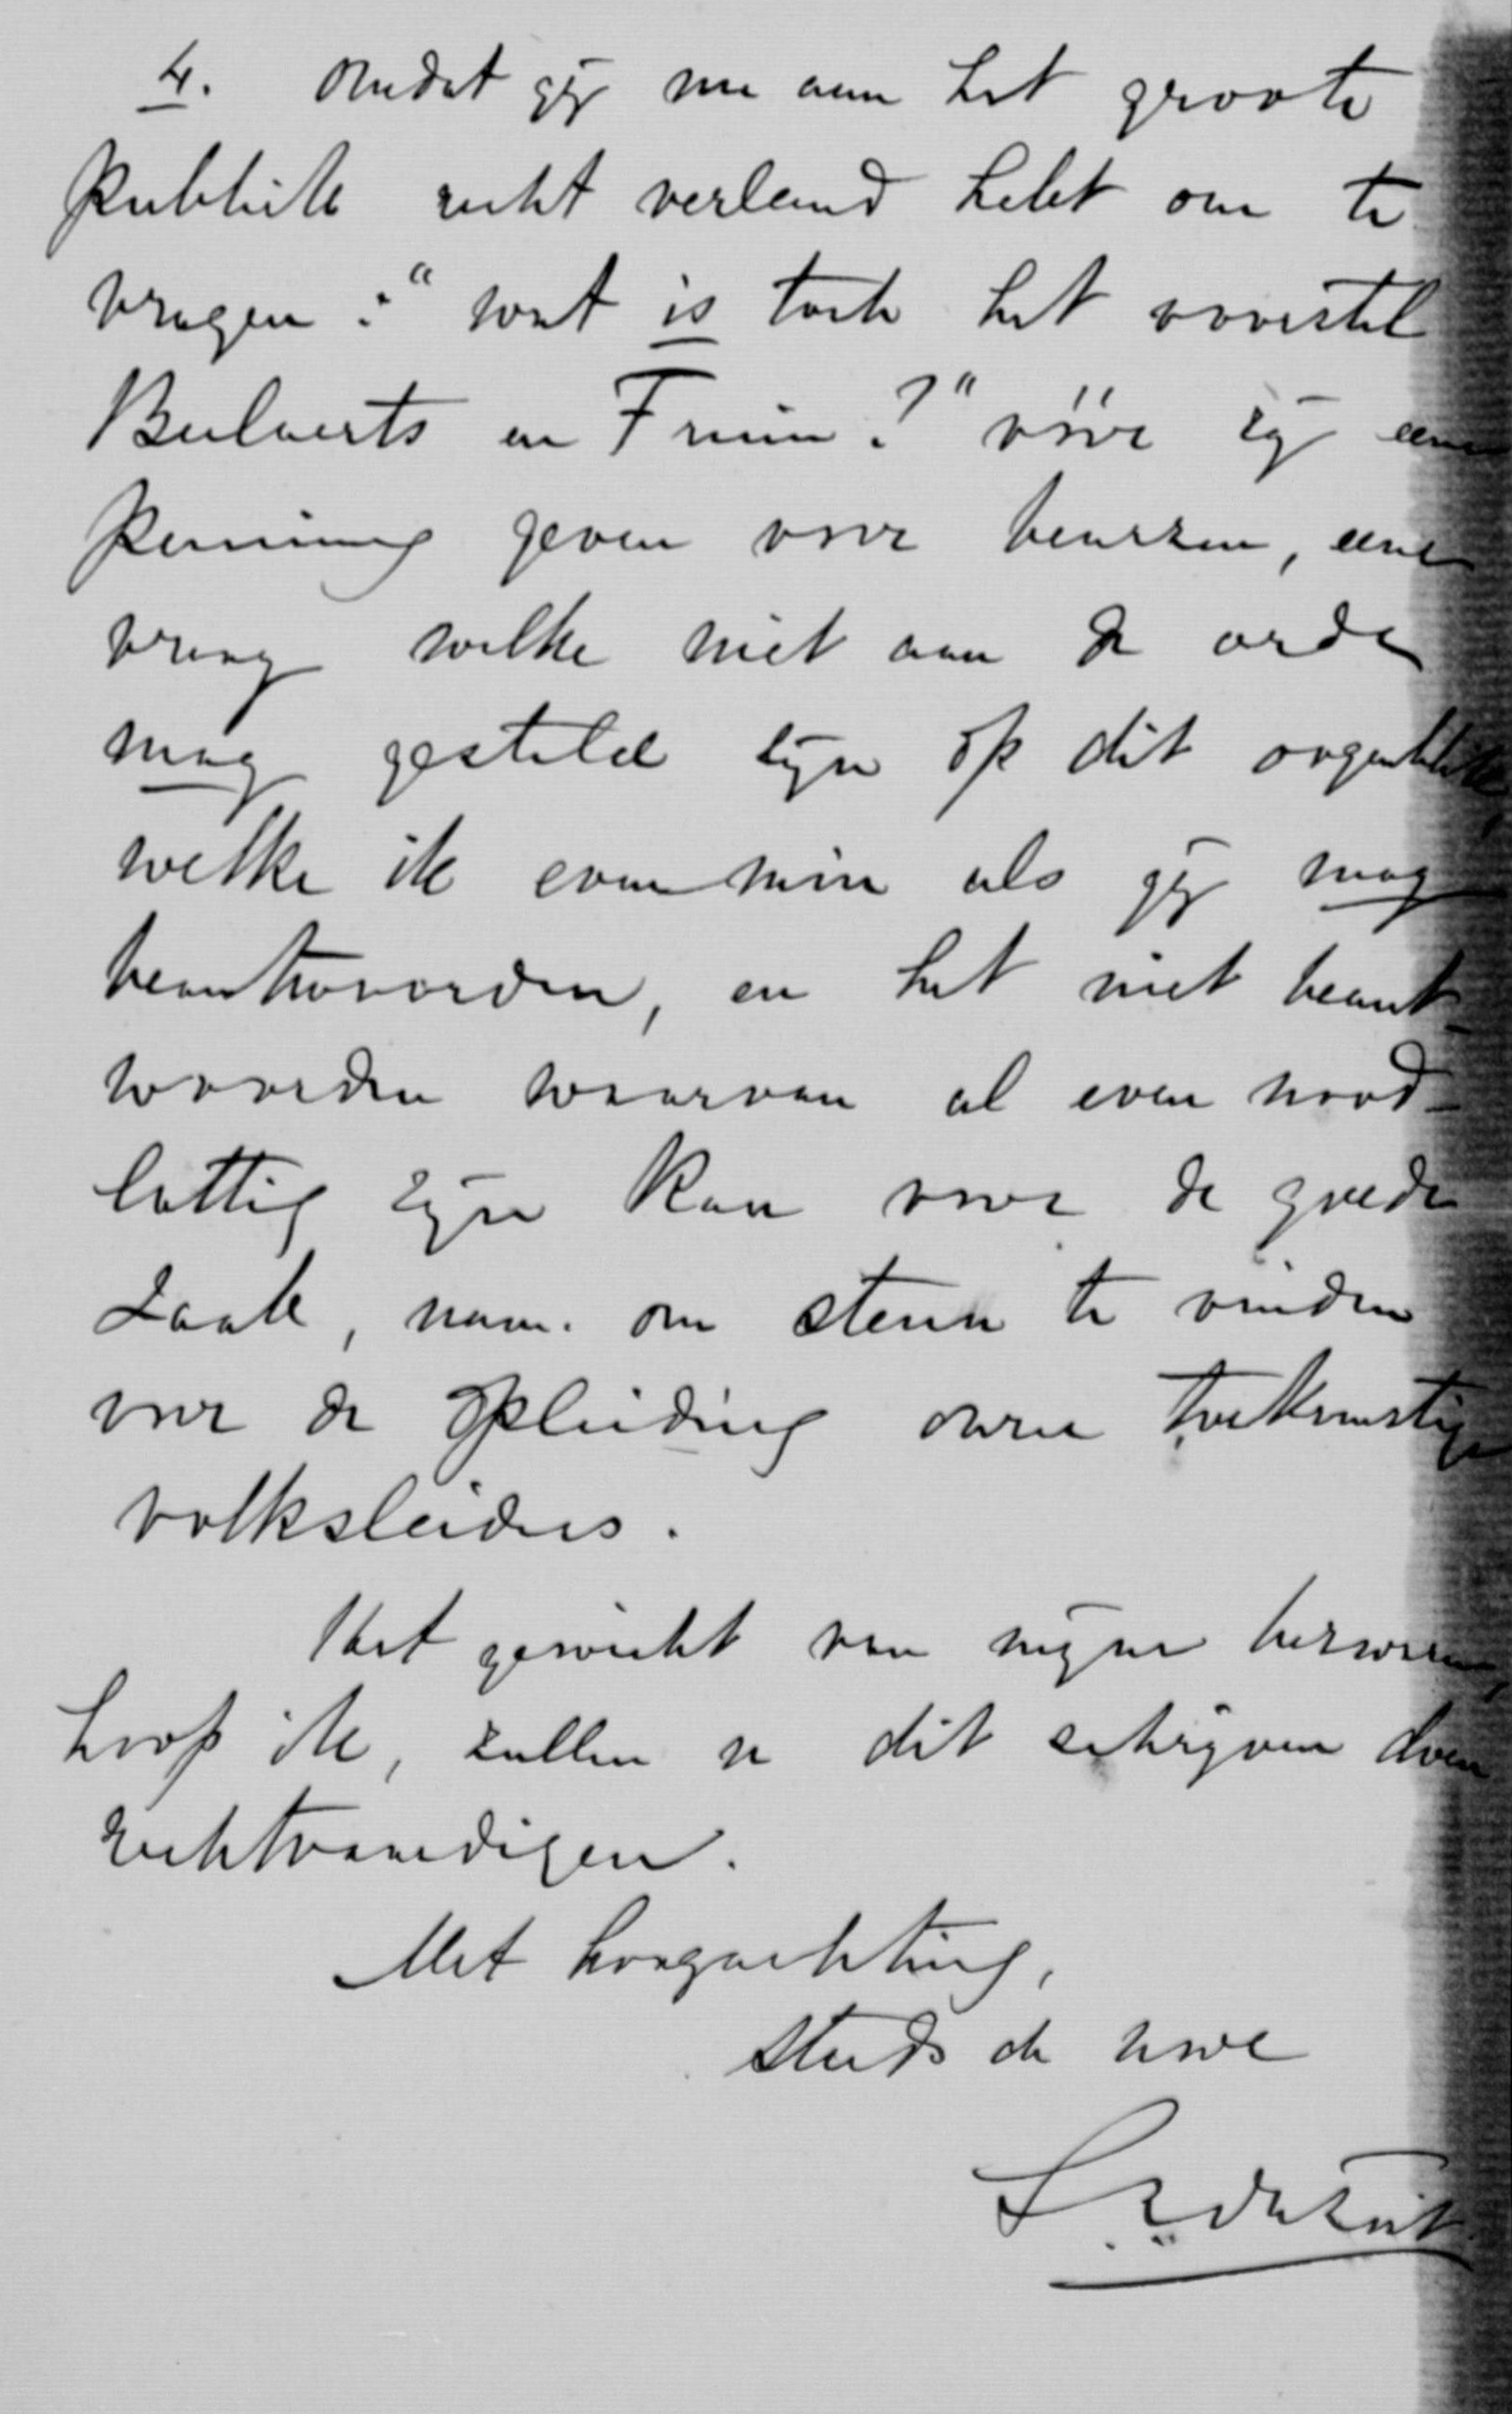 4. Omdat gij nu aan het groote
publiek recht verleend hebt om te
vragen: "wat is toch het voorstel
Beelaerts en Fruin?" vóór zij eene
penning geven voor beurzen, eene
vraag welke niet aan de orde
mag gesteld zijn op dit oogenblik,
welke ik evenmin als gij mag
beantwoorden, en het niet beant-
woorden waarvan al even nood-
lottig zijn kan voor de goede
zaak, nam. om steun te vinden
voor de opleiding onzer toekomstige
volksleiders.
Het gewicht van mijne bezwaren,
hoop ik, zullen u dit schrijven doen
rechtvaardigen.
Met hoogachting,
steeds de uwe